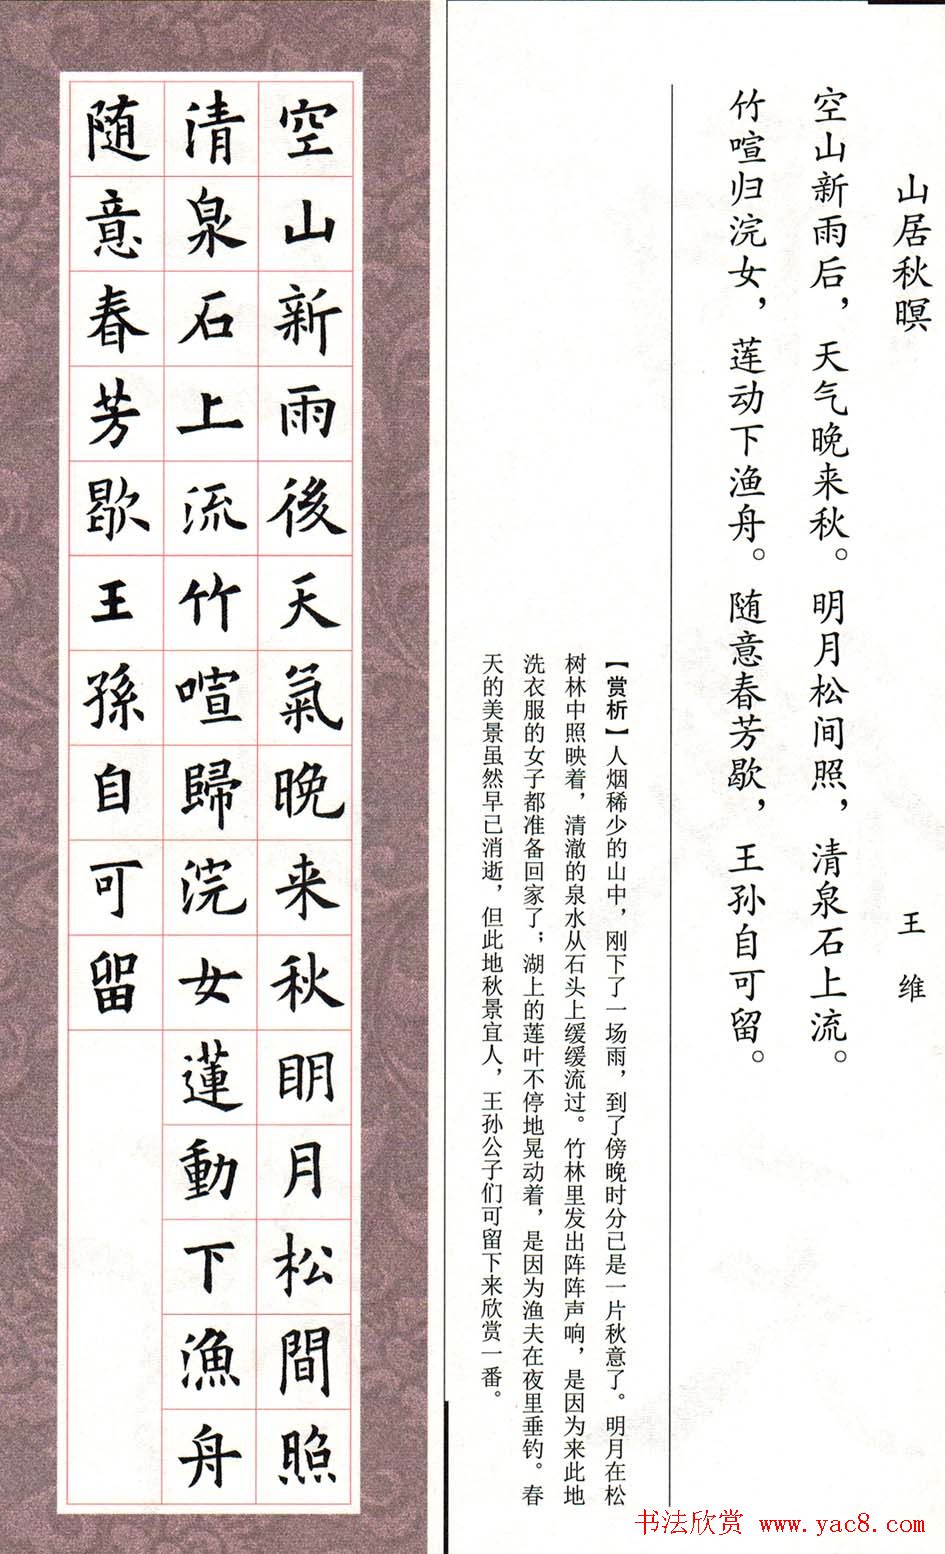 山居秋暝
王维
空山新雨后，天气晚来秋。明月松间照，清泉石上流。
竹喧归浣女，莲动下渔舟。随意春芳歇，王孙自可留。
【赏析】人烟稀少的山中，刚下了一场雨，到了傍晚时分已是一片秋意了。明月在松
树林中照映着，清澈的泉水从石头上缓缓流过。竹林里发出阵阵声响，是因为来此地
洗衣服的女子都准备回家了；湖上的莲叶不停地晃动着，是因为渔夫在夜里垂钓。春
天的美景虽然早已消逝，但此地秋景宜人，王孙公子们可留下来欣赏一番。
空山新雨後天氣晚来秋明月松間照
清泉石上流竹喧歸浣女蓮動下漁舟
随意春芳歇王孫自可留
书法欣赏 www.yac8.com